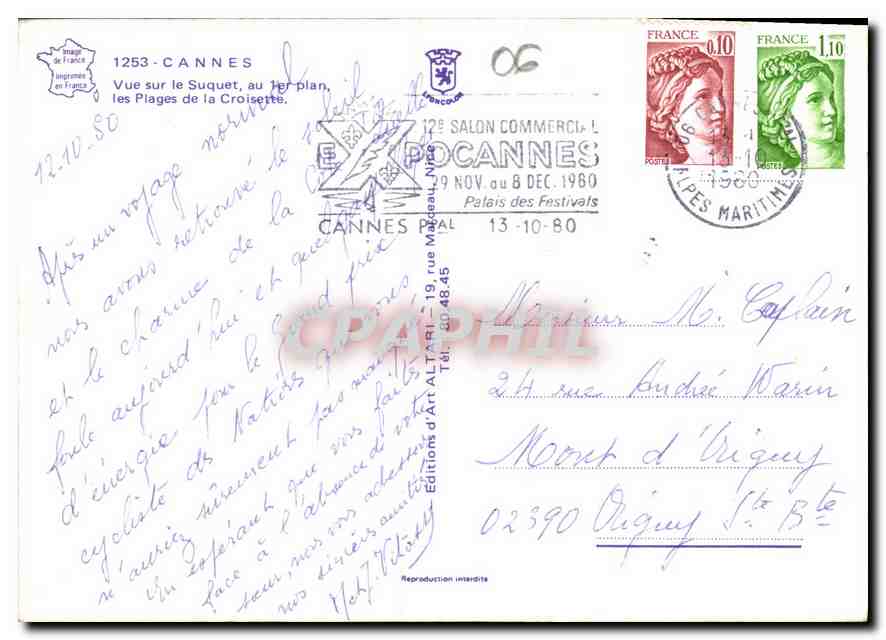 Image
de France
Imprimée
en France
1253 - CANNES
Vue sur le Suquet, au 1er plan,
les Plages de la Croisette.
LYONCOLOR
06
FRANCE
0,10
POSTES
FRANCE
1,10
POSTES
12e SALON COMMERCIAL
EXPOCANNES
29 NOV. au 8 DEC. 1980
Palais des Festivals
CANNES PPAL 13-10-80
06
13-10
1980
ALPES MARITIMES
12.10.80
Après un voyage normal
nous avons retrouvé le soleil
et le charme de la
foule aujourd'hui et quelque
d'énergie pour le Grand prix
cycliste des Nations que vous
n'auriez sûrement pas manqué
En espérant que vous faites
face à l'absence de votre
sœur, nous vous adressons
nos sincères amitiés
M et J. Vitasse
Editions d'Art ALTARI - 19, rue Marceau, Nice
Tél. : 80.48.45
CPAPHIL
Monsieur M. Caplain
24 rue André Warin
Mont d'Origny
02390 Origny Ste Bte
Reproduction interdite